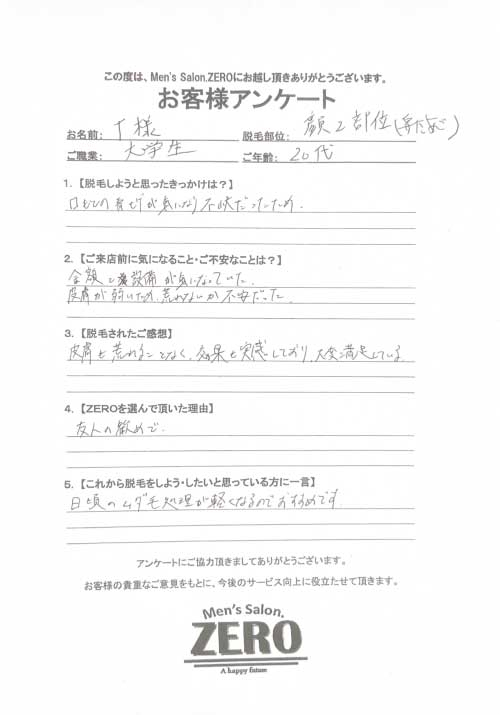 この度は、Men's Salon.ZEROにお越し頂きありがとうございます。
お客様アンケート
お名前: T様 脱毛部位: 顔2部位(鼻下あご)
ご職業: 大学生 ご年齢: 20代
1.【脱毛しようと思ったきっかけは?】
口もとの青ヒゲが気になり不快だったため.
2.【ご来店前に気になること・ご不安なことは?】
金額と設備が気になっていた.
皮膚が弱いため、荒れないか不安だった.
3.【脱毛されたご感想】
皮膚も荒れることなく、効果も実感しており、大変満足している.
4.【ZEROを選んで頂いた理由】
友人の勧めで.
5.【これから脱毛をしよう・したいと思っている方に一言】
日頃のムダ毛処理が軽くなるのでおすすめです
アンケートにご協力頂きましてありがとうございます。
お客様の貴重なご意見をもとに、今後のサービス向上に役立たせて頂きます。
Men's Salon.
ZERO
A happy future